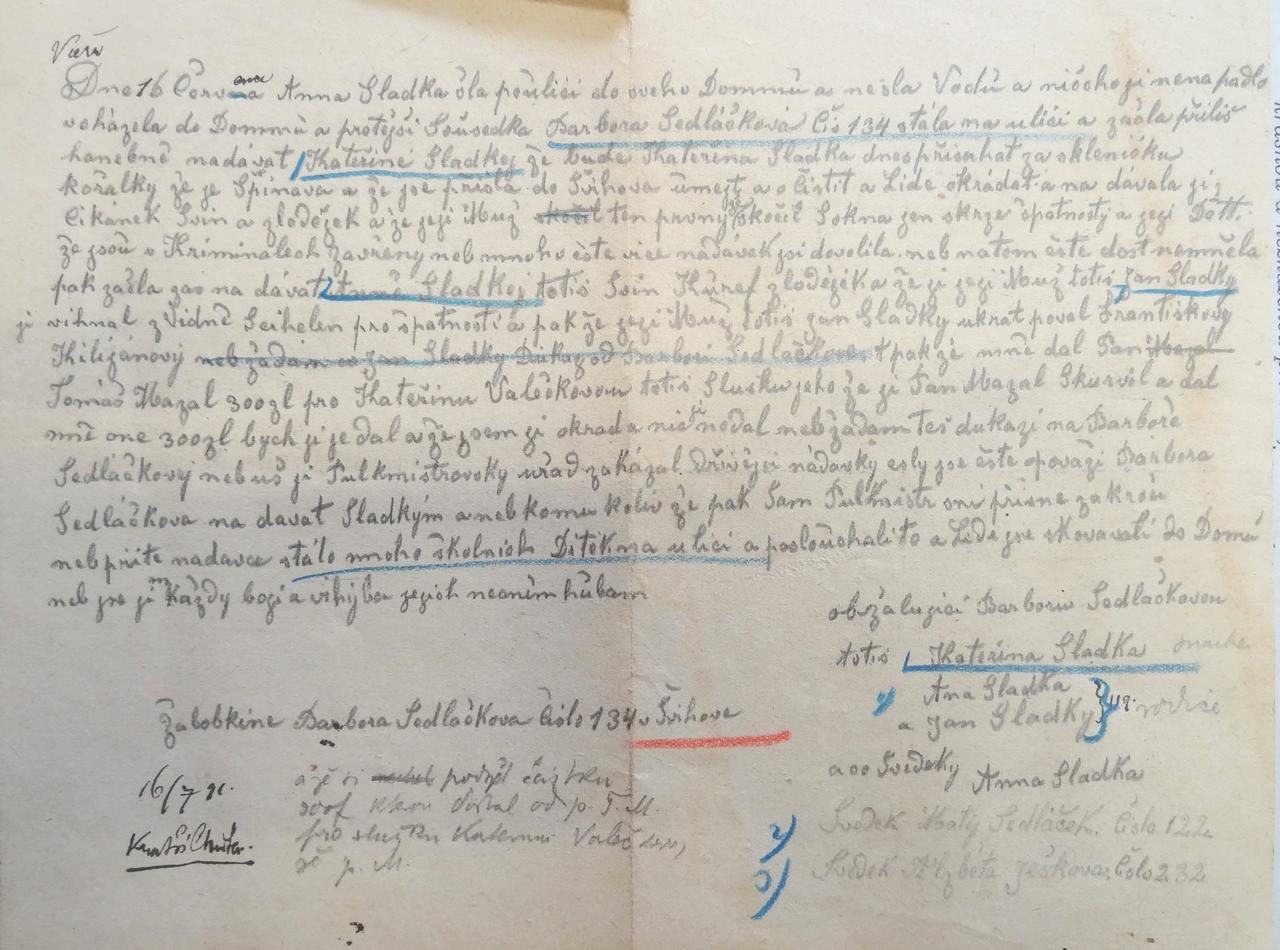 Dne 16 Června Anna Sladka šla poulici do sveho Dommů a nesla Vodů a ničoho ji nenapadlo
vcházela do Dommů a protějsi Soŭsedka Barbora Sedláčkova čis 134 stála na ulici a začla příliš
hanebně nadávat Kateřině Sladkej že bude Kateřina Sladka dnes přisahat za skleničku
kořalky že je Špinava a že jse přišla do Švihova umejt a očistit a Lide okrádat a na dávala ji z
Cikánek Svin a zlodějek a že jegi Muž ten prvny skočil Sokna jen skrze špatnosty a jegi Dětí
že jsoŭ v Kriminalech zavřeny neb mnoho ěste vice nadávek jsi dovolila neb natom ěste dost nemněla
pak začla zas na dávat Anně Sladkej totiš Svin Kŭref zlodějka že ji jegi Muž totiš Jan Sladky
ji vihnal z Vidně pro špatnosti a pak že jegi Muž totiš Jan Sladky ukrat poval Frantiskovy
Kiliánovy neb žadam co Jan Sladky Dukaz od Barbori Sedlačkove, pak že mně dal Pan Mazal
Tomáš Mazal 300zl pro Kateřinu Valečkovou totiš Slusku jeho že ji Pan Mazal Skurvil a dal
mně one 300zl bych ji je dal a že jsem ji okrad a nic ji nedal neb žadam teš dukazi na Barboře
Sedláčkovej neb uš ji Pulkmistrovsky uřad zakázal Dřivějsi nádavky esly jse ěste opováži Barbora
Sedláčkova na davat Sladkým a neb komu koliv že pak Sam Pulkmistr sní přisne zakroči
neb přite nadavce stálo mnoho školnich Ditek na ulici a posloŭchali to a Lidé jse skovavali do Domŭ
neb jse ji Každy boji a vihýba jegich nečním hŭbam
obžalujici Barboru Sedláčkovou
totiš Kateřina Sladka
Ana Sladka
a Jan Sladky 119. rodiče
žalobkine Barbora Sedlačkova čislo 134 v Švihove
aco Svedeky Anna Sladka
16/7 91.
a že si podržel částku
300f kterou dostal od p. T. M.
pro služku Kateřinu Valečkovou,
že p. M.
2) Svedek Matěj Sedláček. čislo 122
3) Svedek Alžběta Ješkova, čislo 232